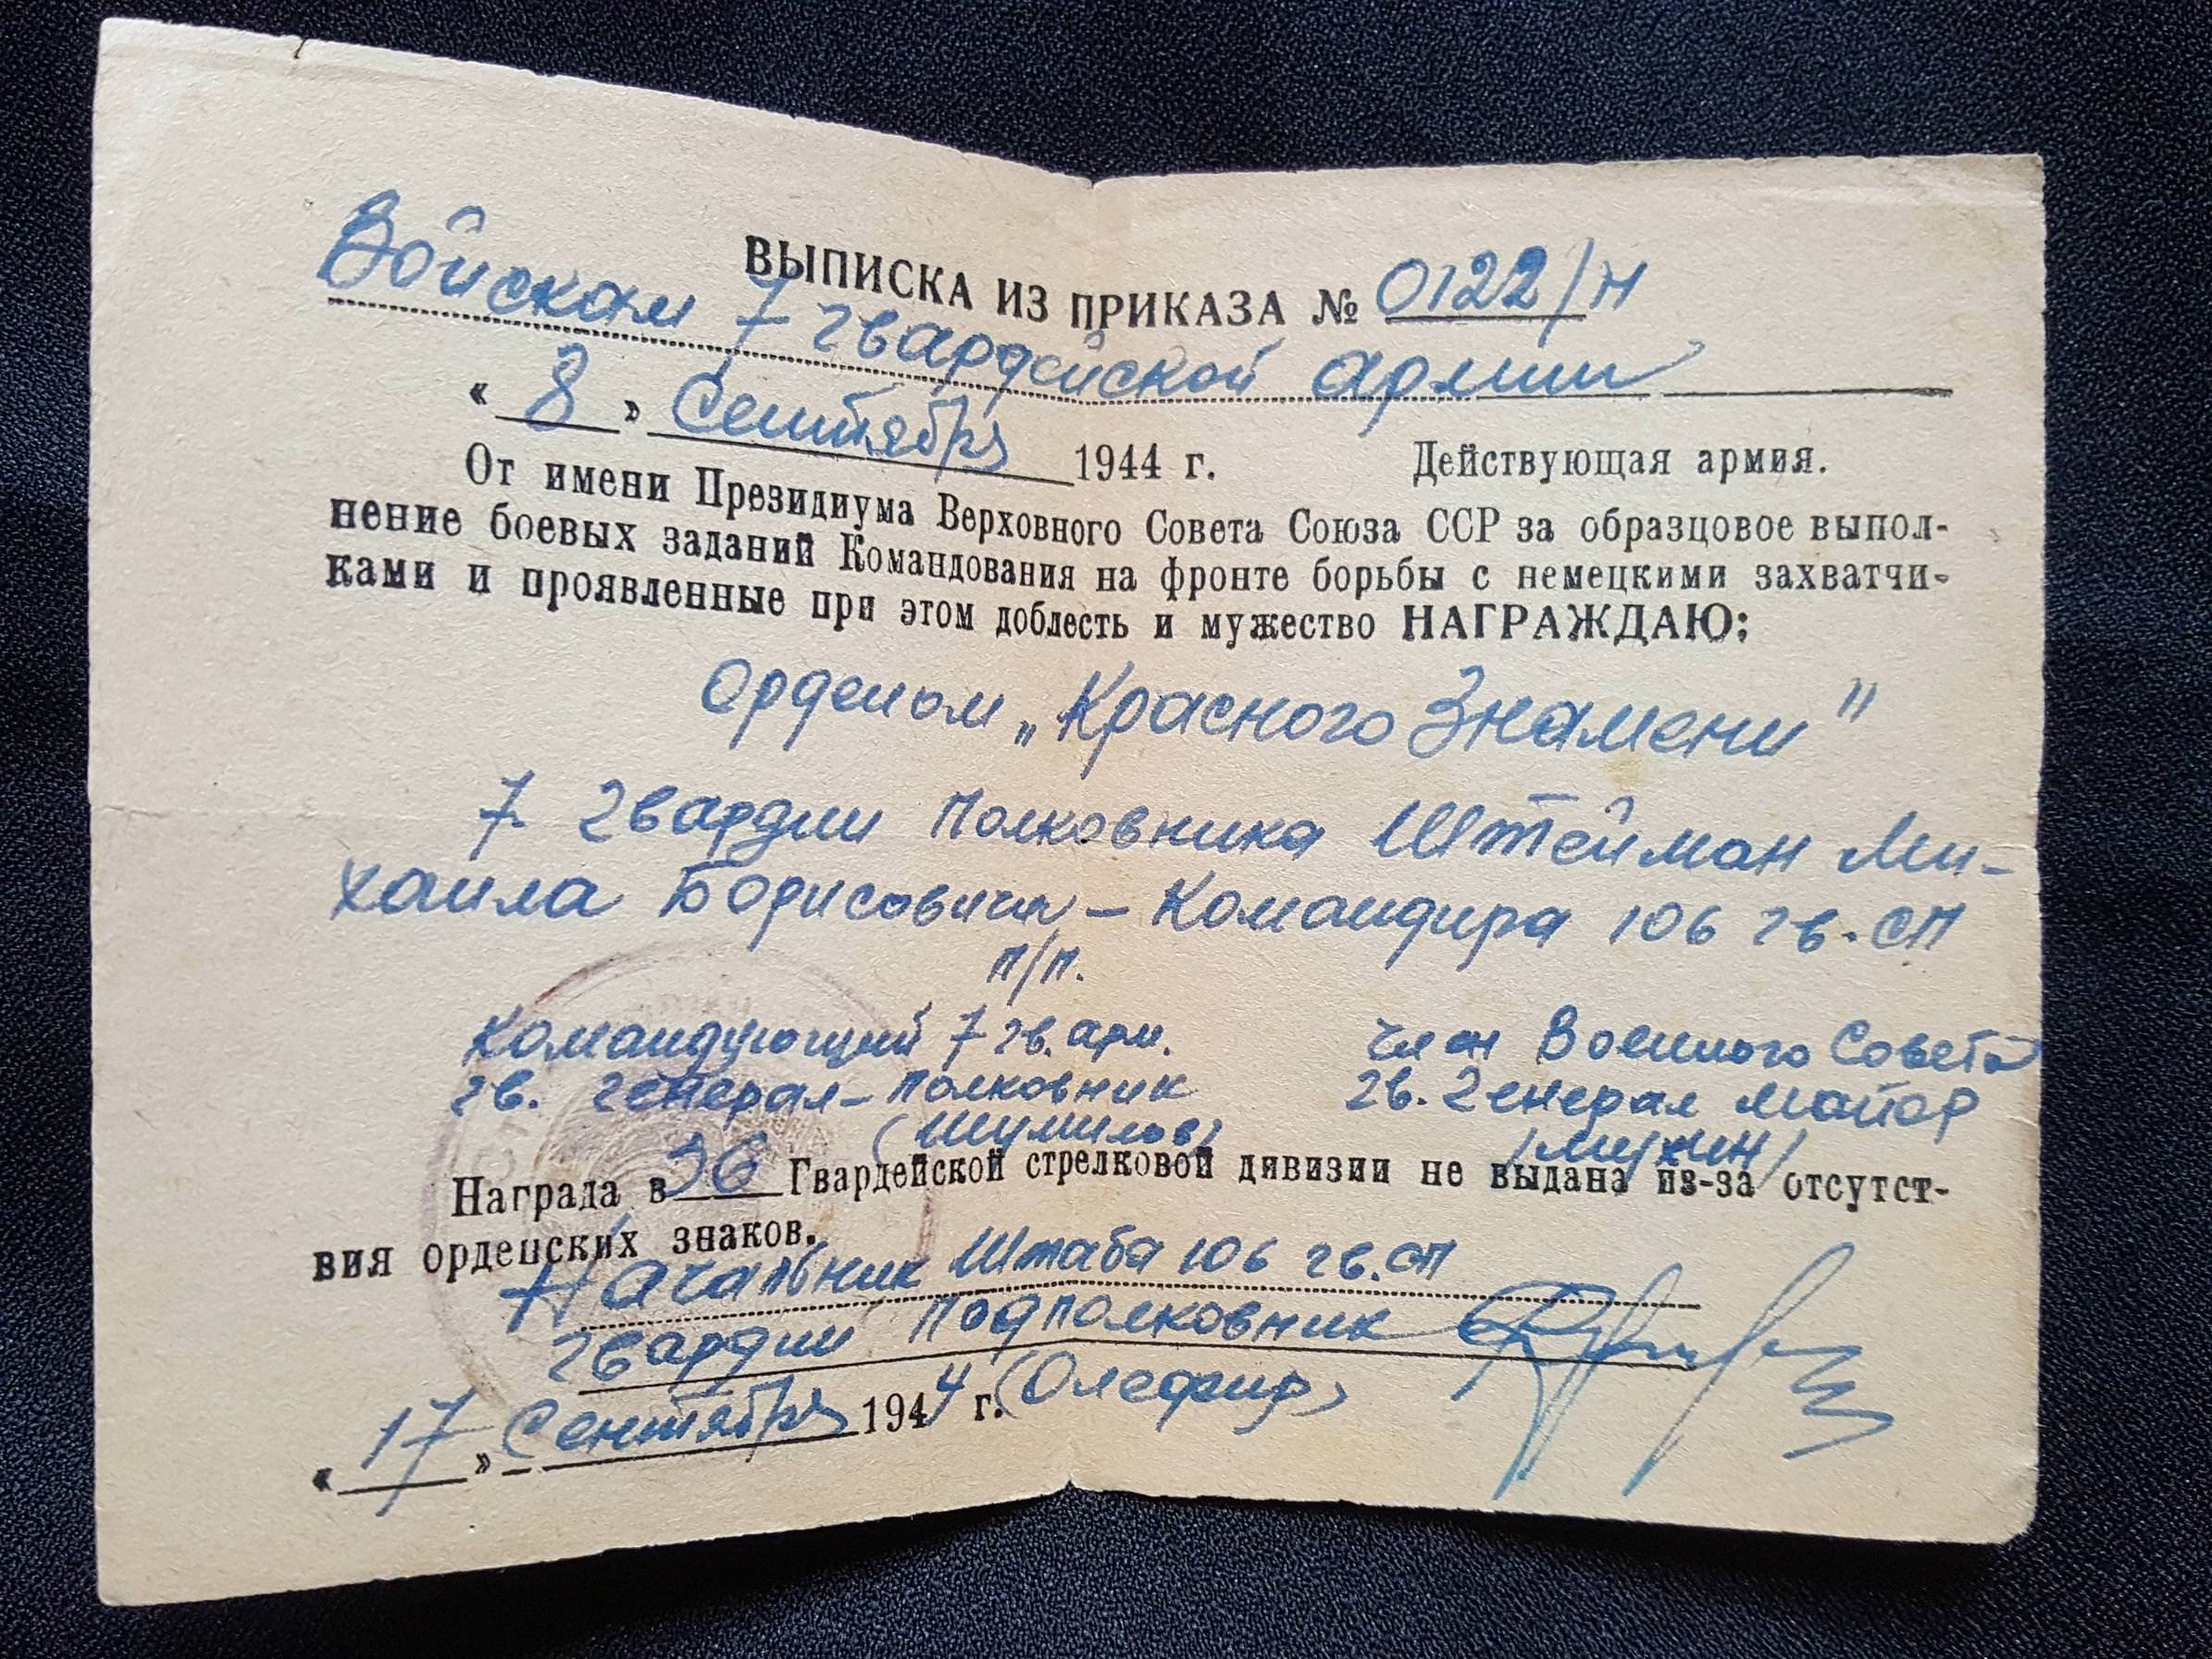 ВЫПИСКА ИЗ ПРИКАЗА № 0122/н
Войскам 7 гвардейской армии
« 8 » Сентября 1944 г. Действующая армия.
От имени Президиума Верховного Совета Союза ССР за образцовое выпол-
нение боевых заданий Командования на фронте борьбы с немецкими захватчи-
ками и проявленные при этом доблесть и мужество НАГРАЖДАЮ:
Орденом „Красного Знамени"
7. Гвардии Полковника Штейман Ми-
хаила Борисовича – Командира 106 гв. СП
п/п.
Командующий 7 гв. арм. Член Военного Совета
гв. генерал-полковник гв. Генерал майор
(Шумилов) /Мухин/
Награда в 36 Гвардейской стрелковой дивизии не выдана из-за отсутст-
вия орденских знаков.
Начальник Штаба 106 гв. СП
гвардии Подполковник
(Олефир)
« 17 » Сентября 1944 г.